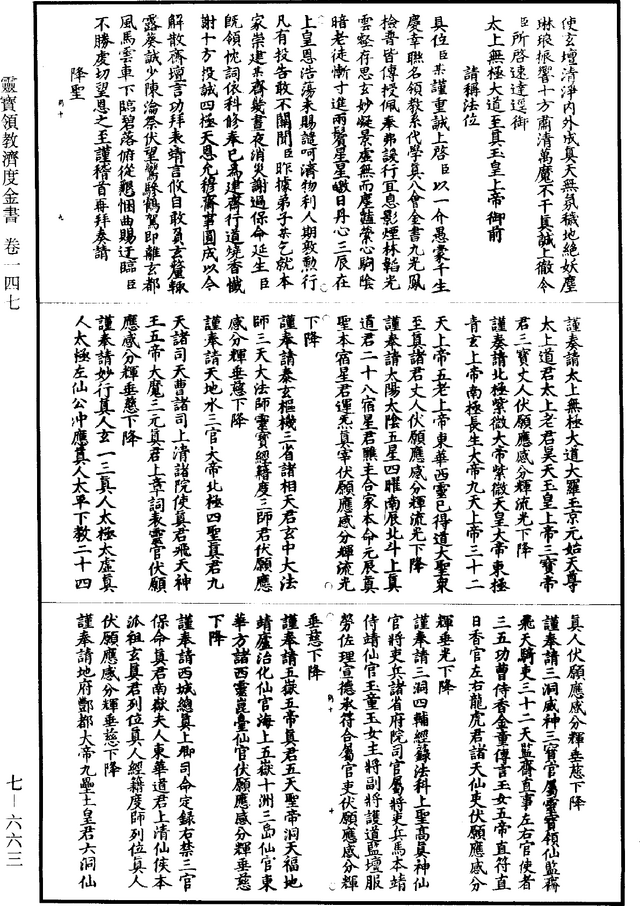 使玄壇清淨内外成真天無氛穢地絶妖塵
琳琅振響十方肅清萬魔不干真誠上徹令
臣所啓速達逕御
太上無極大道至真玉皇上帝御前
請稱法位
具位臣某謹重誠上啓臣以一介愚蒙千生
慶幸聯名領教系代學真八會金書九光鳳
檢曹皆傳授佩奉弗諼行宜息影煙林韜光
雲壑存思玄妙凝景虛無而塵韁縈心駒陰
暗老徒慚寸進兩鬢星星皦日丹心三辰在
上皇恩浩蕩未賜譴呵濟物利人期敷勳行
凡有投告敢不關聞臣昨據弟子某乞就本
家崇建某齋幾晝夜消災謝過保命延生臣
既領忱詞依科修奉已爲建齋行道燒香懺
謝十方投誠四極天恩允穆齋事圓成以今
解散齋壇言功拜表靖言攸自敢負玄釐輒
露葵誠少陳淪祭伏望鸞驂鶴駕即離玄都
風馬雲車下臨碧落俯從懇悃曲賜迂臨臣
不勝虔切望恩之至謹稽首再拜奏請
降聖
謹奉請太上無極大道大羅玉京元始天尊
太上道君太上老君昊天玉皇上帝三寶帝
君三寶丈人伏願應感分輝流光下降
謹奏請北極紫微大帝紫微天皇大帝東極
青玄上帝南極長生大帝九天上帝三十二
天上帝五老上帝東華西靈已得道大聖衆
至真諸君丈人伏願應感分輝流光下降
謹奏請太陽太陰五星四曜南辰北斗上真
道君二十八宿星君醮主合家本命元辰真
聖本宿星君運炁真宰伏願應感分輝流光
下降
謹奉請泰玄樞機三省諸相天君玄中大法
師三天大法師靈寶經籍度三師君伏願應
感分輝垂慈下降
謹奉請天地水三官大帝北極四聖真君九
天諸司天曹諸司上清諸院使真君飛天神
王五帝大魔三元真君上章詞表靈官伏願
應感分輝垂慈下降
謹奉請妙行真人玄一三真人太極太虛真
人太極左仙公沖應真人太平下教二十四
真人伏願應感分輝垂慈下降
謹奉請三洞威神三寶官屬靈寶領仙監齋
飛天騎吏三十二天監齋直事左右官使者
三五功曹侍香金童傳言玉女五帝直符直
日香官左右龍虎君諸天仙吏伏願應感分
輝垂光下降
謹奉請三洞四輔經籙法科上聖高真神仙
官將吏兵諸省府院司官屬將吏兵馬本靖
侍靖仙官玉童玉女主將副將護道監壇服
勞佐理宣德承符合屬官吏伏願應感分輝
垂慈下降
謹奉請五嶽五帝真君五天聖帝洞天福地
靖廬治化仙官海上五嶽十洲三島仙官東
華方諸西靈崑臺仙官伏願應感分輝垂慈
下降
謹奉請西城總真上卿司命定録右禁三官
保命真君南嶽夫人東華道君上清仙侯本
派祖玄真君列位真人經籍度師列位真人
伏願應感分輝垂慈下降
謹奉請地府酆都大帝九壘土皇君六洞仙
靈寶領教濟度金書 卷一四七
七-六六三